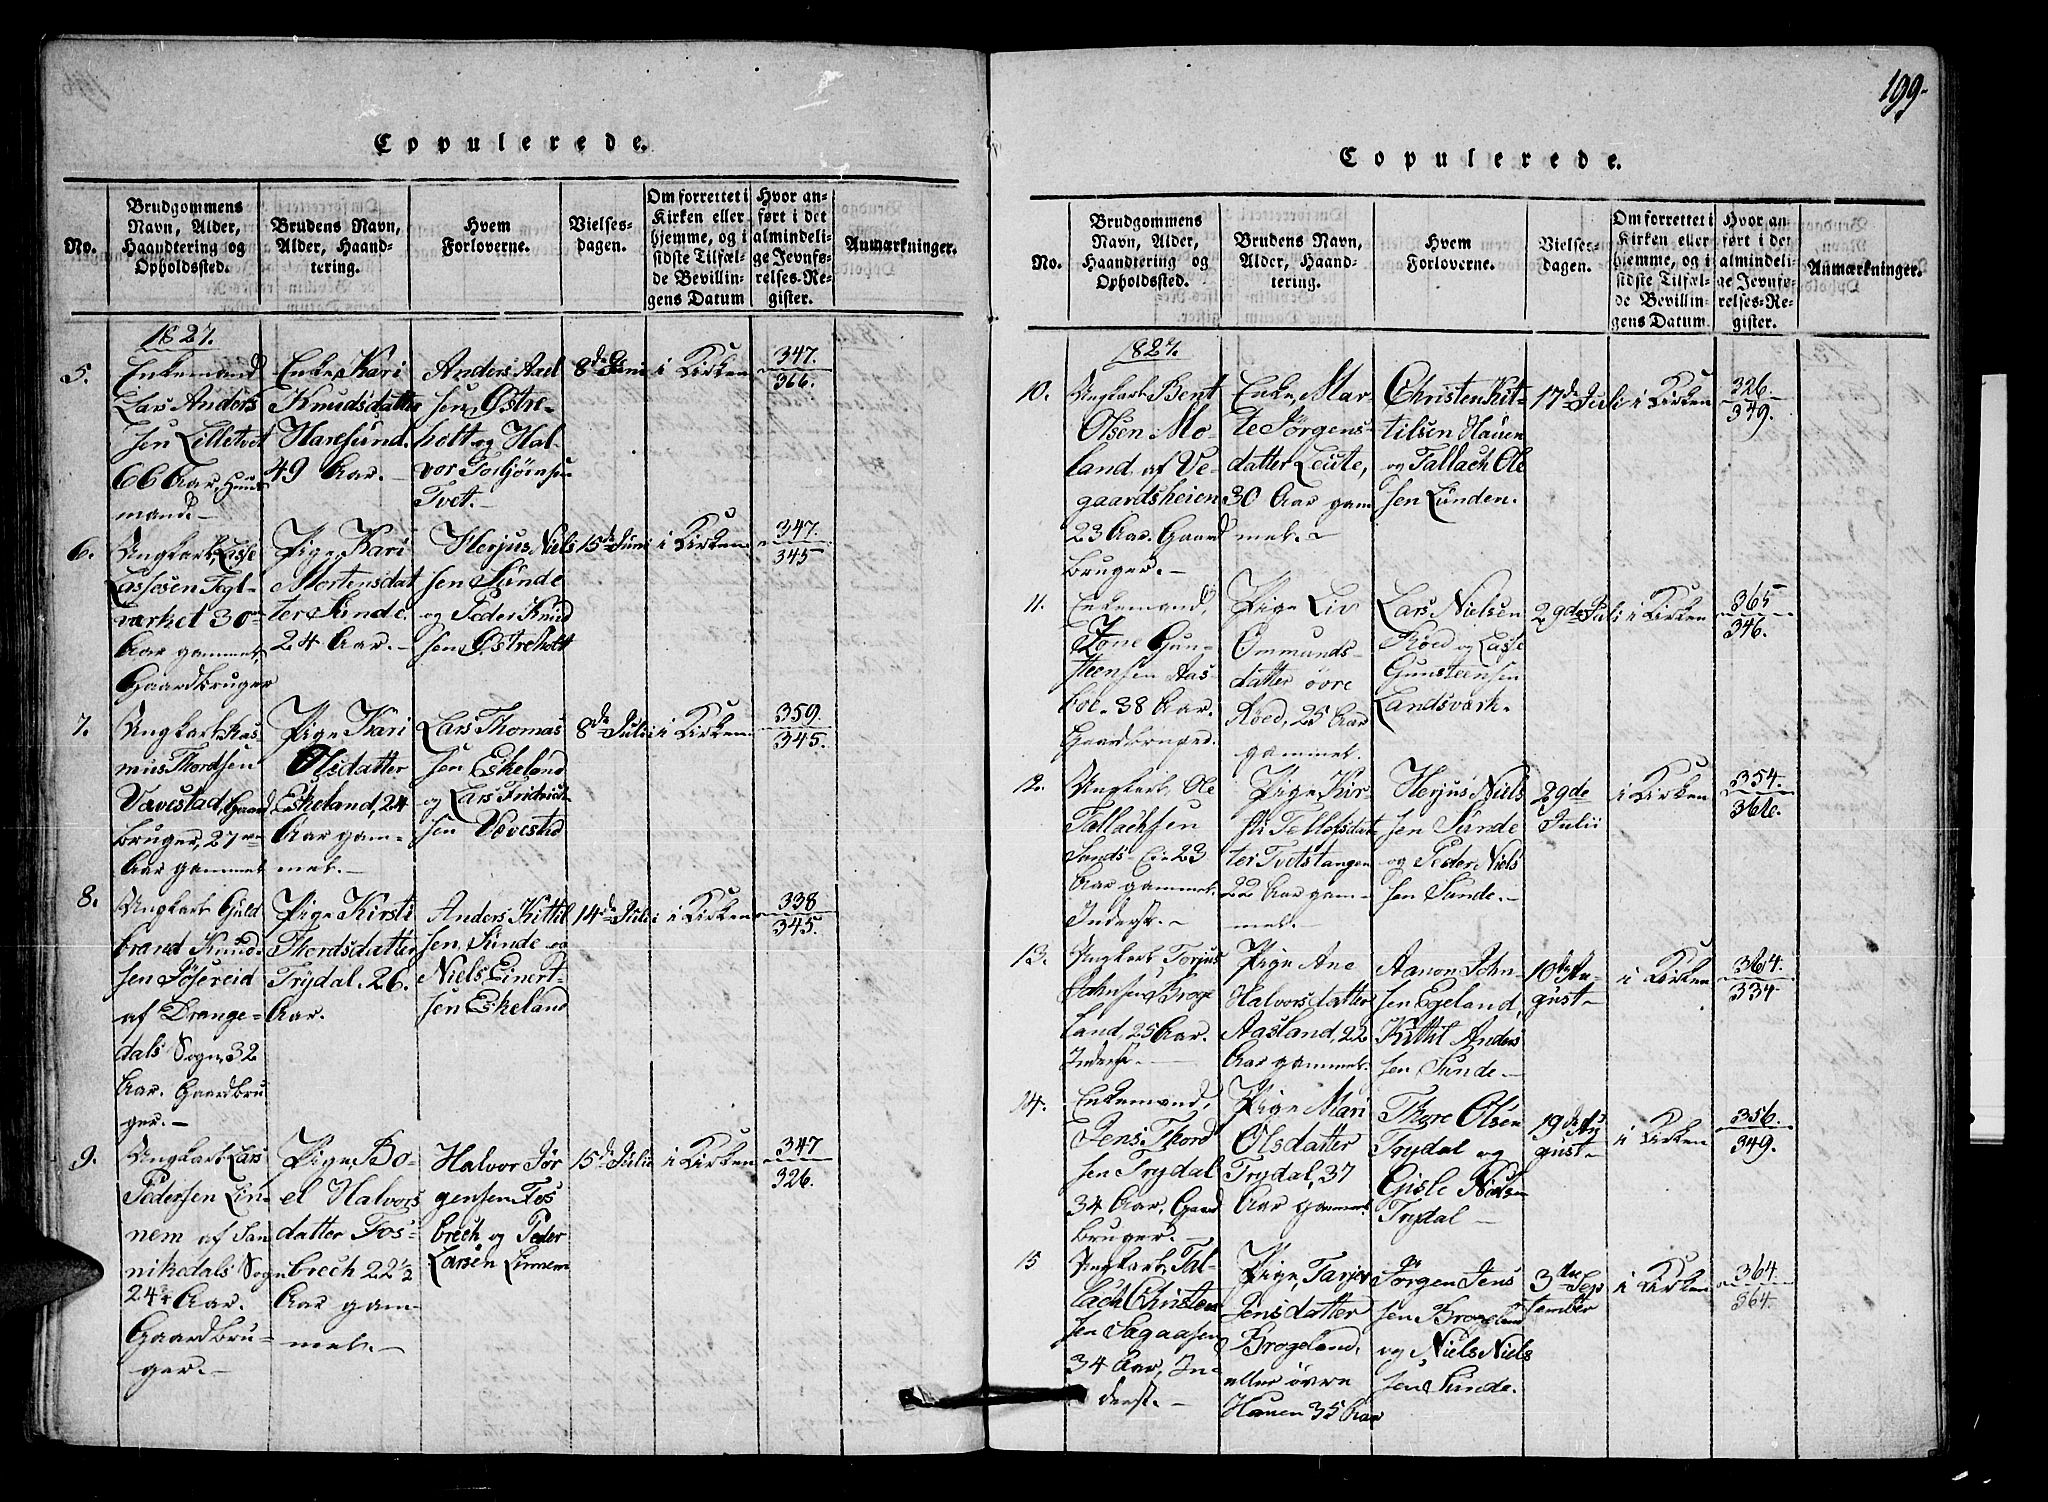 199.
Copulerede.
No.
Brudgommens
Navn, Alder,
Haandtering og
Opholdssted.
Brudens Navn,
Alder, Haand-
tering.
Hvem
Forloverne.
Vielses-
dagen.
Om forrettet i
Kirken eller
hjemme, og i
sidste Tilfæl-
de Bevillin-
gens Datum
Hvor an-
ført i det
almindeli-
ge Jevnfø-
relses-Re-
gister.
Anmærkninger.
1827.
5.
Enkemand
Lars Anders
sen Lilletvet
66 Aar, Huus
mand.-
Enke Kari
Knudsdatter
Haresund.
49 Aar.-
Anders Axel
sen Østre-
holt og Hal
vor Torbjørnsen
Tvet.-
8de Juni
i Kirken
347.
366.
6.
Ungkarl Lasse
Lassesen Tegl-
værket 30
Aar gammel,
Gaardbruger
Pige Kari
Mortensdat
ter Sunde.
24 Aar.-
Herjus Niels
sen Sunde
og Peder Knud
sen Østreholt
15de Juni
i Kirken
347.
345
7.
Ungkarl Ras-
mus Thordsen
Vævestad, Gaard
bruger, 27
Aar gammel
Pige Kari
Olsdatter
Eskeland, 24
Aar gam-
mel.-
Lars Thomas
sen Eskeland
og Lars Fridrich-
sen Vævestad
8de Juli
i Kirken
359.
345.
8.
Ungkarl Guld
brand Knud-
sen Jøsereid
af Drange-
dals Sogn, 32
Aar. Gaardbru
ger.-
Pige Kirsti
Thordsdatter
Trydal. 26.
Aar.
Anders Kittil
sen, Sunde og
Niels Einert-
sen Eskeland
14de Juli
i Kirken
338
345.
9.
Ungkarl Lars
Pedersen Lin-
nem af San
nikedals Sogn
24 Aar.
Gaardbru-
ger.-
Pige Bo-
el Halvors
datter Fos-
brech 22 1/2
Aar gam-
mel.-
Halvor Jør
gensen Fos
brech og Peder
Larsen Linnem
15de Julii
i Kirken
347
326.
Copulerede.
No.
Brudgommens
Navn, Alder,
Haandtering og
Opholdssted.
Brudens Navn,
Alder, Haand-
tering.
Hvem
Forloverne.
Vielses-
dagen.
Om forrettet i
Kirken eller
hjemme, og i
sidste Tilfæl-
de Bevillin-
gens Datum.
Hvor an-
ført i det
almindeli-
ge Jevnfø-
relses-Re-
gister.
Anmærkninger.
1827.
10.
Ungkarl Bent
Olsen Mo-
land af Ve-
gaardsheien
23 Aar. Gaard
bruger.-
Enke, Mar
te Jørgens-
datter Leute,
30 Aar gam
mel.-
Christen Kit-
tilsen Hauen
og Tallach Ole
sen Lunden.
17de Juli
i Kirken
326
349.
11.
Enkemand,
Tone Gun-
steensen Aas-
bøe. 38 Aar.
Gaardbruger.
Pige Liv
Ommunds-
datter øvre
Røed, 25 Aar
gammel.
Lars Nielsen
Røed og Lasse
Gunsteensen
Landsværk.
29de Juli
i Kirken
365
346.
12.
Ungkarl, Ole
Tallachsen
Sunds-Eie 23
Aar gammel.
Inderst.-
Pige, Kir-
sti Tellefsdat
ter Tvetstangen
22 Aar gam-
mel.-
Herjus Niels
sen Sunde
og Peder Niels
sen Sunde.-
29de
Julii
i Kirken
354.
13.
Ungkarl, Torjus
Johnsen Broge
land, 25 Aar.
Inderst.-
Pige Ane
Halvorsdatter
Aasland, 22
Aar gammel.
Aanon John-
sen Egeland,
Kittil Anders
sen Sunde.-
10de Au-
gust-
i Kirken
364.
334
14.
Enkemand,
Jens Thord
sen Trydal
34 Aar, Gaard
bruger.-
Pige Mari
Olsdatter
Trydal, 37
Aar gammel
Thore Olsen
Trydal og
Gisle Nielsen
Trydal -
19de Au
gust-
i Kirken
356.
349.
15
Ungkarl, Tal-
lach Christen
sen Sagaasen
34 Aar, In-
derst.-
Pige, Tarjer
Jensdatter
Brogeland,
eller øvre
Hauen 35 Aar
Jørgen Jens
sen Brogeland
og Niels Niels
sen Sunde.
3die Sep
tember
i Kirken
364.
364.